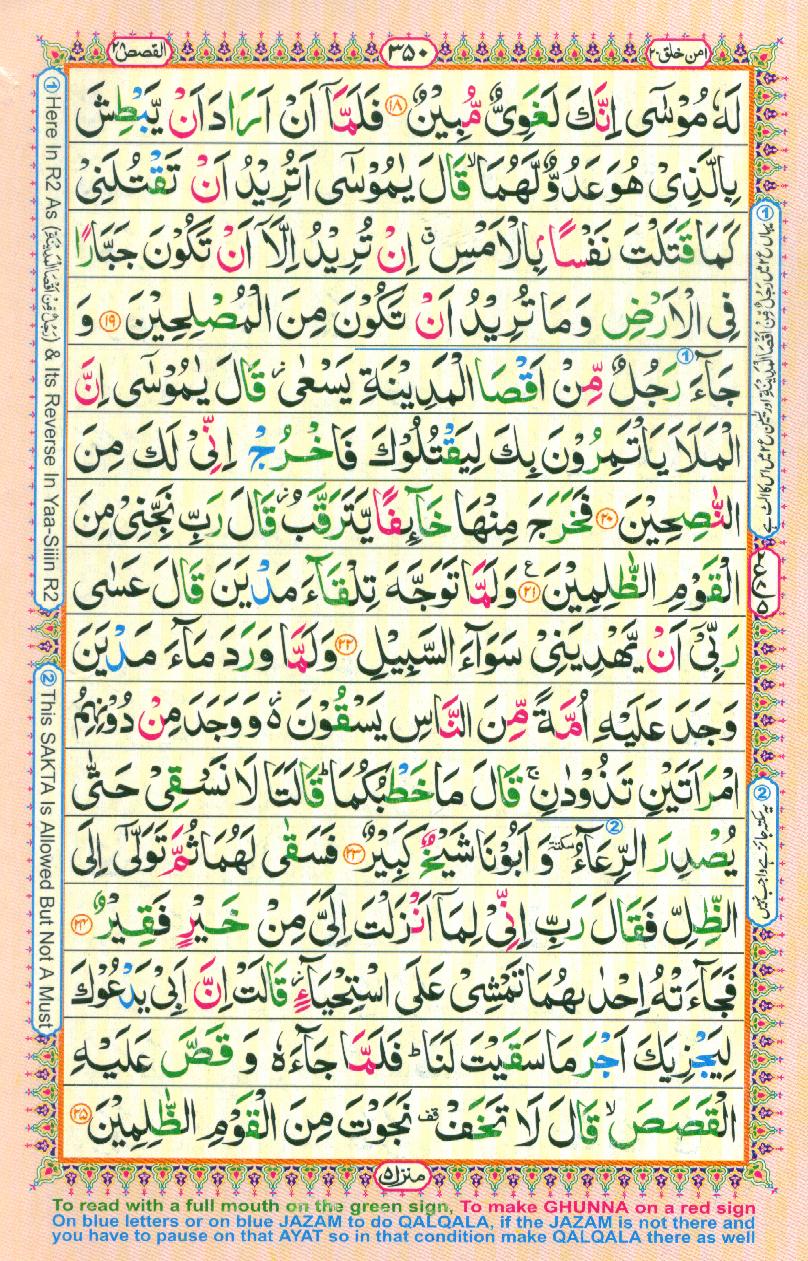 القصص ٢٨
٣٥٠
امن خلق ٢٠
لَهٗ مُوْسٰۤى اِنَّكَ لَغَوِیٌّ مُّبِیْنٌ ﴿۱۸﴾ فَلَمَّاۤ اَنْ اَرَادَ اَنْ یَّبْطِشَ
بِالَّذِیْ هُوَ عَدُوٌّ لَّهُمَا ۙ قَالَ یٰمُوْسٰۤى اَتُرِیْدُ اَنْ تَقْتُلَنِیْ
كَمَا قَتَلْتَ نَفْسًۢا بِالْاَمْسِ ۖۗ اِنْ تُرِیْدُ اِلَّاۤ اَنْ تَكُوْنَ جَبَّارًا
فِی الْاَرْضِ وَ مَا تُرِیْدُ اَنْ تَكُوْنَ مِنَ الْمُصْلِحِیْنَ ﴿۱۹﴾ وَ
جَآءَ رَجُلٌ مِّنْ اَقْصَا الْمَدِیْنَةِ یَسْعٰى ؗ قَالَ یٰمُوْسٰۤى اِنَّ
الْمَلَاَ یَاْتَمِرُوْنَ بِكَ لِیَقْتُلُوْكَ فَاخْرُجْ اِنِّیْ لَكَ مِنَ
النّٰصِحِیْنَ ﴿۲۰﴾ فَخَرَجَ مِنْهَا خَآىِٕفًا یَّتَرَقَّبُ ؗ قَالَ رَبِّ نَجِّنِیْ مِنَ
الْقَوْمِ الظّٰلِمِیْنَ ﴿۲۱﴾ وَلَمَّا تَوَجَّهَ تِلْقَآءَ مَدْیَنَ قَالَ عَسٰى
رَبِّیْۤ اَنْ یَّهْدِیَنِیْ سَوَآءَ السَّبِیْلِ ﴿۲۲﴾ وَلَمَّا وَرَدَ مَآءَ مَدْیَنَ
وَجَدَ عَلَیْهِ اُمَّةً مِّنَ النَّاسِ یَسْقُوْنَ ۬ۗ وَ وَجَدَ مِنْ دُوْنِهِمُ
امْرَاَتَیْنِ تَذُوْدٰنِ ۚ قَالَ مَا خَطْبُكُمَا ؕ قَالَتَا لَا نَسْقِیْ حَتّٰى
یُصْدِرَ الرِّعَآءُ ٚ سكتة وَ اَبُوْنَا شَیْخٌ كَبِیْرٌ ﴿۲۳﴾ فَسَقٰى لَهُمَا ثُمَّ تَوَلّٰۤى اِلَى
الظِّلِّ فَقَالَ رَبِّ اِنِّیْ لِمَاۤ اَنْزَلْتَ اِلَیَّ مِنْ خَیْرٍ فَقِیْرٌ ﴿۲۴﴾
فَجَآءَتْهُ اِحْدٰىهُمَا تَمْشِیْ عَلَى اسْتِحْیَآءٍ ؗ قَالَتْ اِنَّ اَبِیْ یَدْعُوْكَ
لِیَجْزِیَكَ اَجْرَ مَا سَقَیْتَ لَنَا ؕ فَلَمَّا جَآءَهٗ وَ قَصَّ عَلَیْهِ
الْقَصَصَ ۙ قَالَ لَا تَخَفْ ۥۙ نَجَوْتَ مِنَ الْقَوْمِ الظّٰلِمِیْنَ ﴿۲۵﴾
منزل ۵
① Here In R2 As (رَجُلٌ مِّنْ اَقْصَا الْمَدِیْنَةِ) & Its Reverse In Yaa-Siiin R2
② This SAKTA Is Allowed But Not A Must
② یہ سکتہ جائز ہے واجب نہیں
To read with a full mouth on the green sign, To make GHUNNA on a red sign
On blue letters or on blue JAZAM to do QALQALA, if the JAZAM is not there and
you have to pause on that AYAT so in that condition make QALQALA there as well